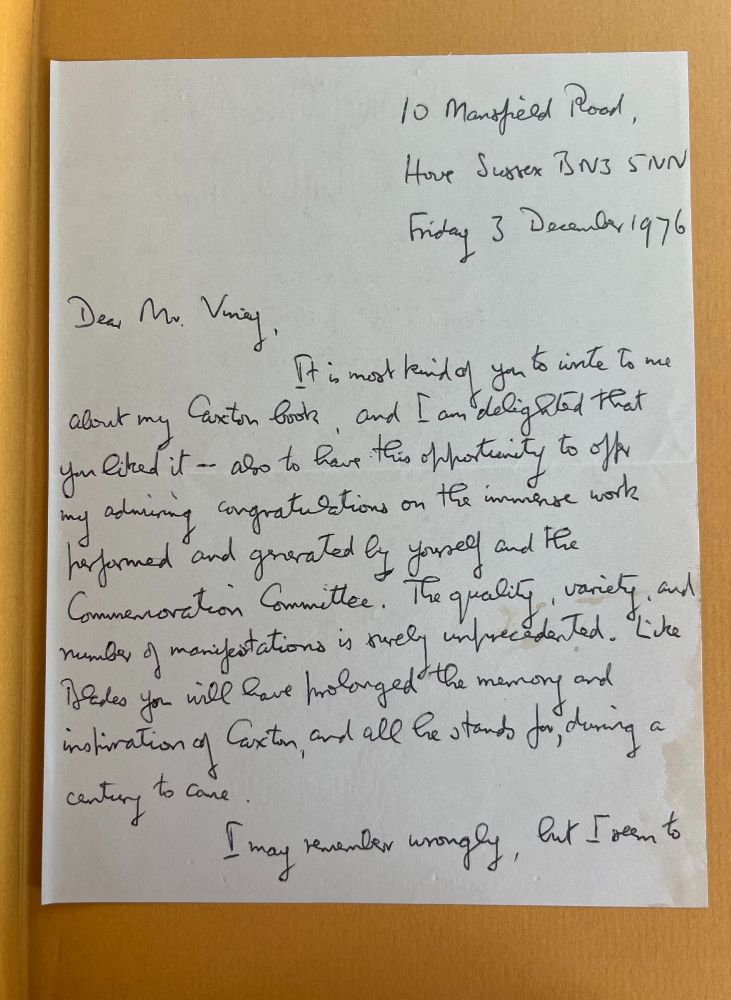 10 Mansfield Road,
Hove Sussex BN3 5NN
Friday 3 December 1976
Dear Mr. Viney,
It is most kind of you to write to me
about my Caxton book, and I am delighted that
you liked it — also to have this opportunity to offer
my admiring congratulations on the immense work
performed and generated by yourself and the
Commemoration Committee. The quality, variety, and
number of manifestations is surely unprecedented. Like
Blades you will have prolonged the memory and
inspiration of Caxton, and all he stands for, during a
century to come.
I may remember wrongly, but I seem to